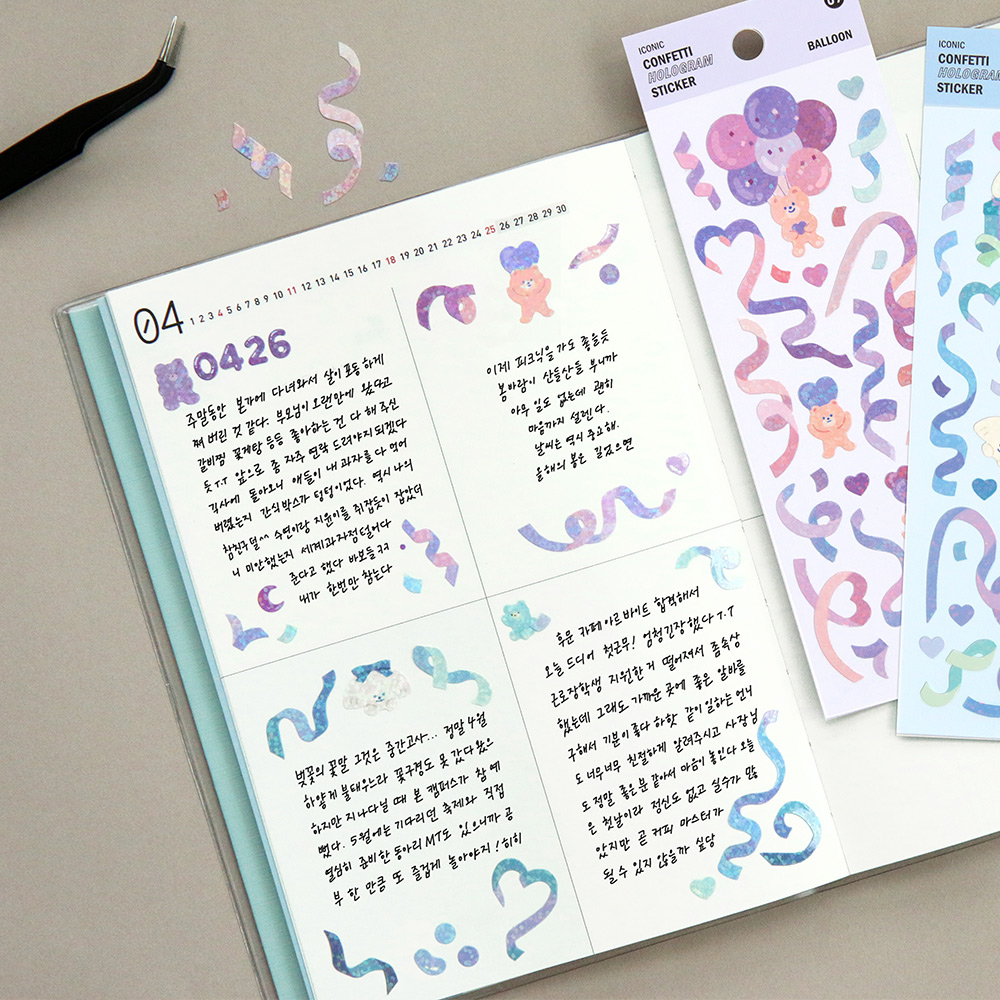 04
1 2 3 4 5 6 7 8 9 10 11 12 13 14 15 16 17 18 19 20 21 22 23 24 25 26 27 28 29 30
0426
주말동안 본가에 다녀와서 살이 포동하게
쪄 버린 것 같다. 부모님이 오랜만에 왔다고
갈비찜 꽃게탕 등등 좋아하는 건 다 해 주신
듯 T.T 앞으로 좀 자주 연락 드려야지 되겠다
긱사에 돌아오니 애들이 내 과자를 다 먹어
버렸는지 간식박스가 텅텅이었다. 역시 나의
참친구덜^^ 수연이랑 지윤이를 쥐잡듯이 잡았더
니 미안했는지 세계과자점 털어다
준다고 했다 바보들ㅋㅋ
내가 한번만 참는다
이제 피크닉을 가도 좋을듯
봄바람이 산들산들 부니까
아무 일도 없는데 괜히
마음까지 설렌다.
날씨는 역시 중요해.
올해의 봄은 길었으면
벚꽃의 꽃말 그것은 중간고사... 정말 4월
하얗게 불태우느라 꽃구경도 못 갔다왔으
하지만 지나다닐 때 본 캠퍼스가 참 예
뻤다. 5월에는 기다리던 축제와 직접
열심히 준비한 동아리 MT도 있으니까 공
부 한 만큼 또 즐겁게 놀아야지! 히히
후문 카페 아르바이트 합격해서
오늘 드디어 첫근무! 엄청긴장했다 T.T
근로장학생 지원한거 떨어져서 좀속상
했는데 그래도 가까운 곳에 좋은 알바를
구해서 기분이 좋다 하핫 같이 일하는 언니
도 너무너무 친절하게 알려주시고 사장님
도 정말 좋은분 같아서 마음이 놓인다 오늘
은 첫날이라 정신도 없고 실수가 많
았지만 곧 커피 마스터가
될수 있지 않을까 싶당
ICONIC
CONFETTI
HOLOGRAM
STICKER
BALLOON
ICONIC
CONFETTI
HOLOGRAM
STICKER